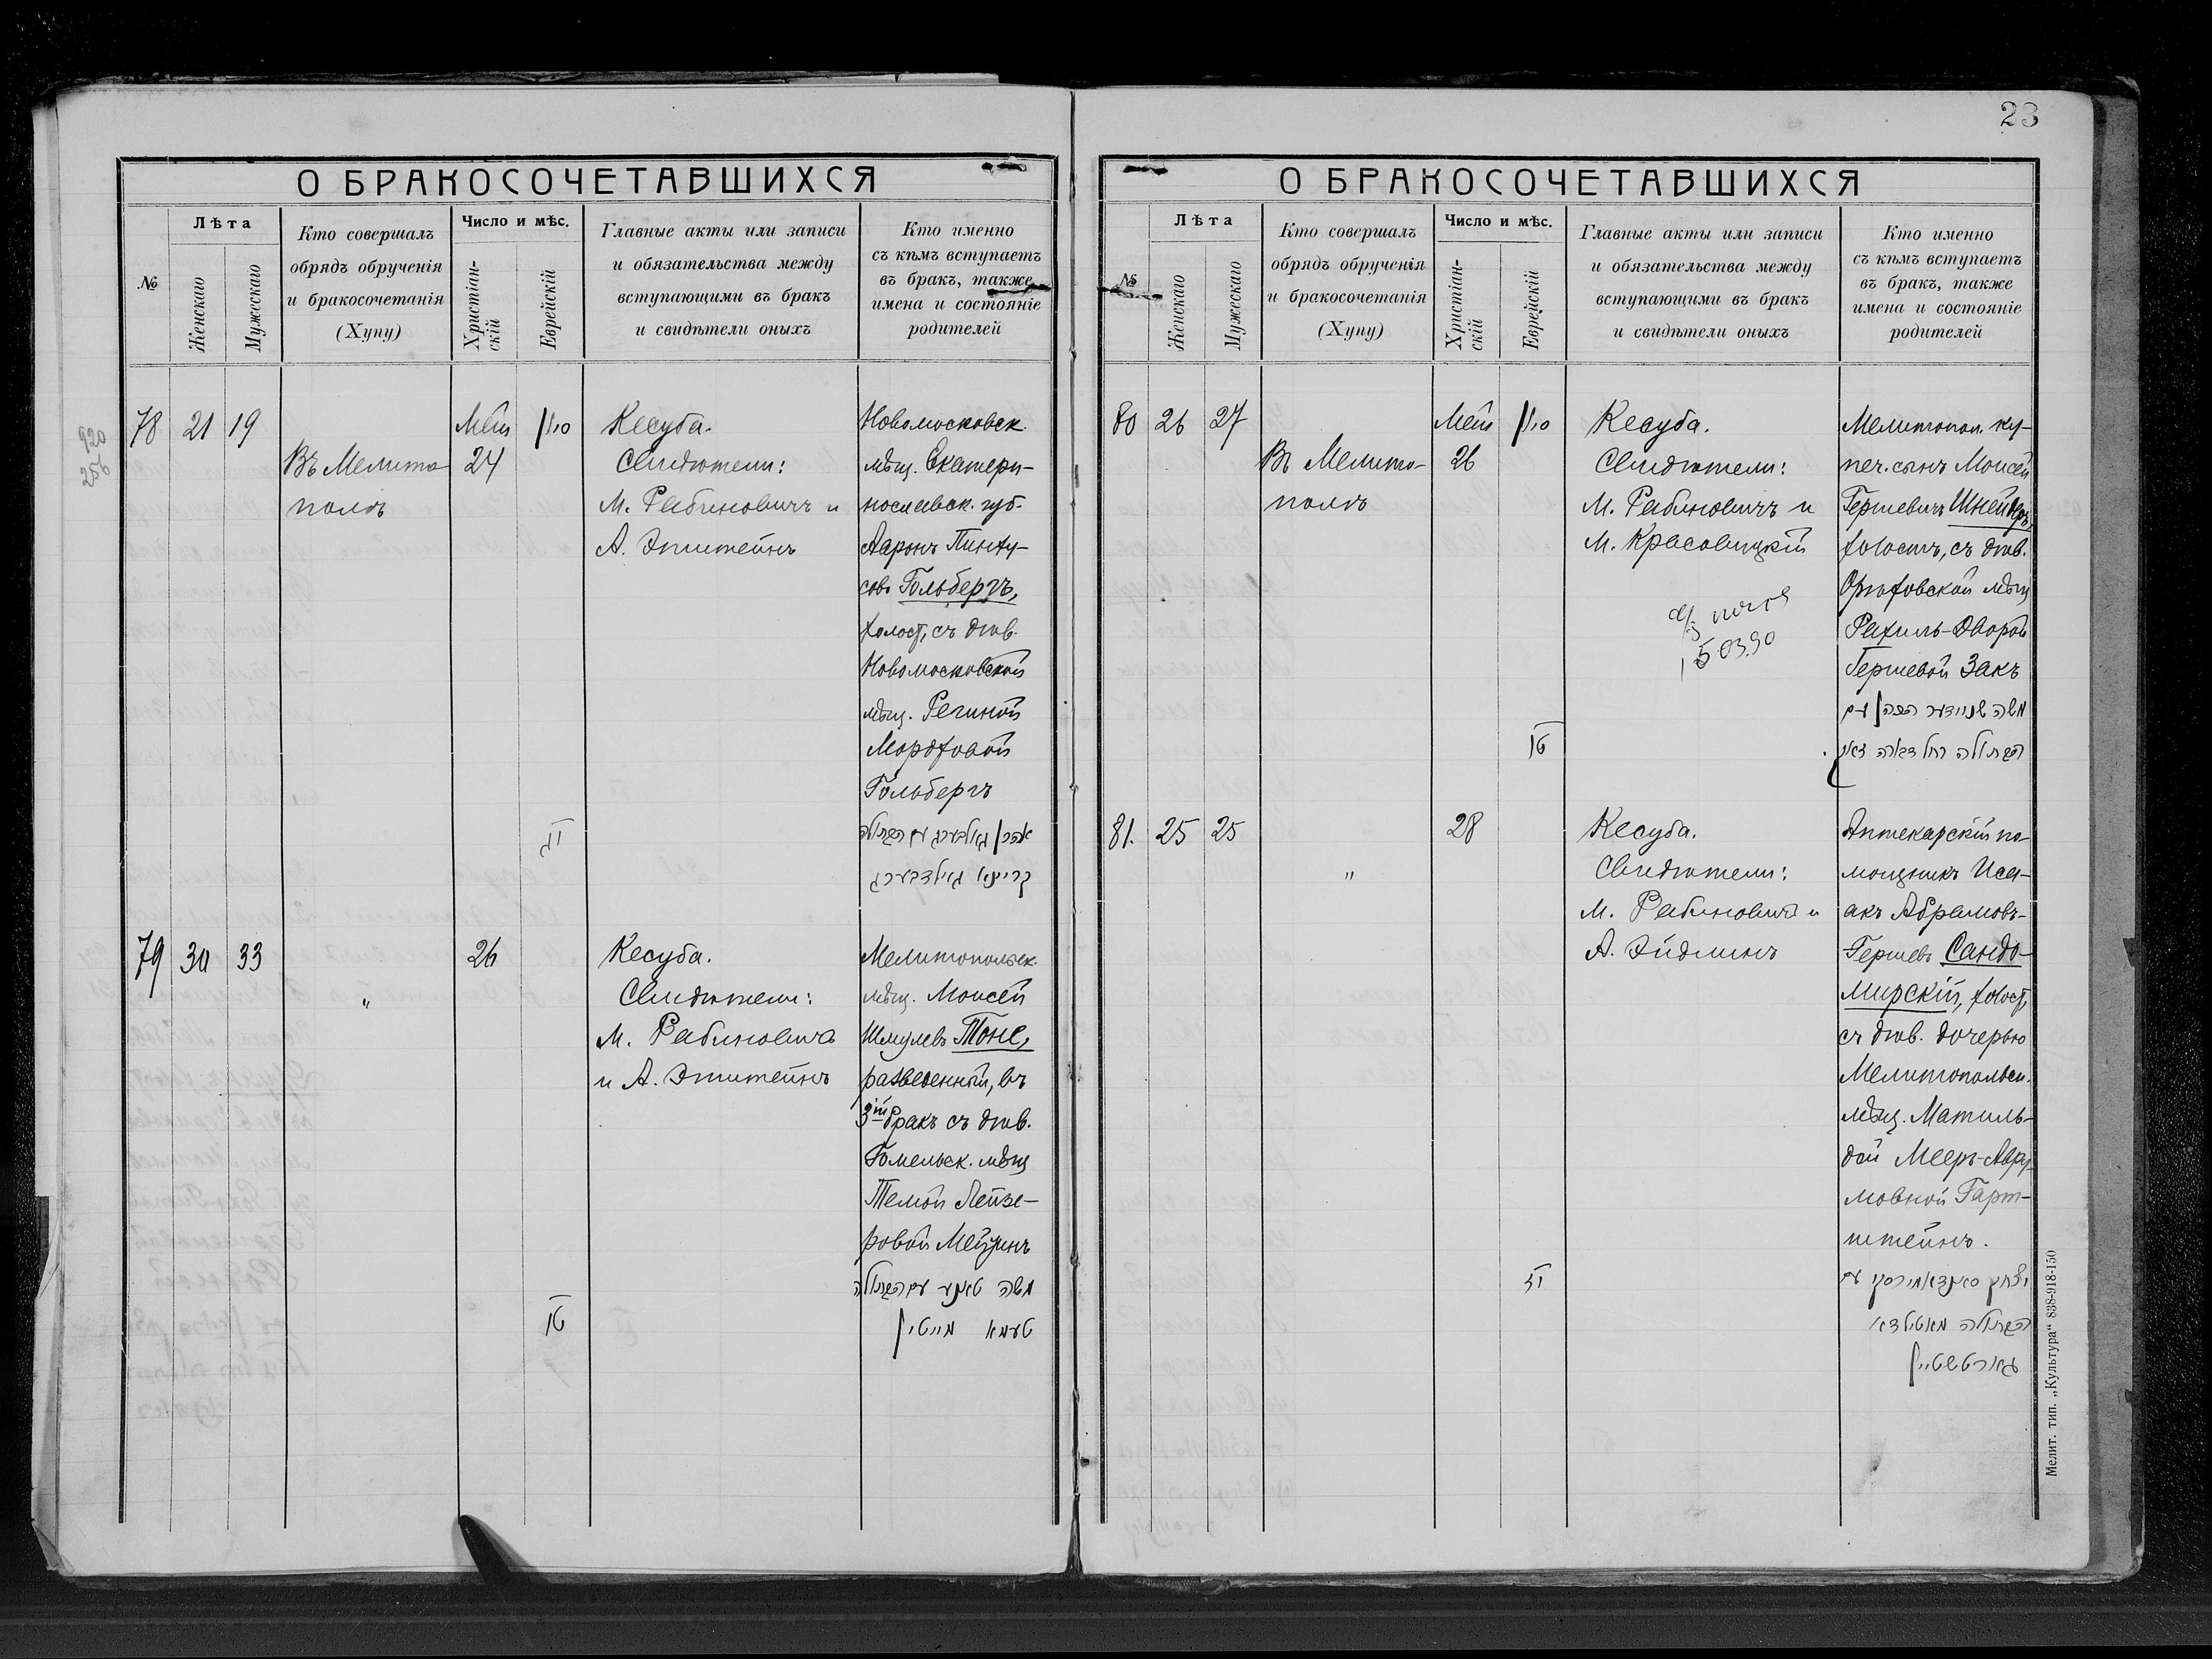 23
О БРАКОСОЧЕТАВШИХСЯ
№
Лѣта
Женскаго
Мужескаго
Кто совершалъ
обрядъ обрученія
и бракосочетанія
(Хупу)
Число и мѣс.
Христіан-
скій
Еврейскій
Главные акты или записи
и обязательства между
вступающими въ бракъ
и свидѣтели оныхъ
Кто именно
съ кѣмъ вступаетъ
въ бракъ, также
имена и состояніе
родителей
920
256
78
21
19
Въ Мелито-
полѣ
Май
24
סיון
יג
Кесуба.
Свидѣтели:
М. Рабиновичъ и
А. Эпштейнъ
Новомосковск.
мѣщ. Екатери-
нославск. губ.
Ааронъ Пинху-
совъ Гольбергъ,
холост, съ дѣв.
Новомосковской
мѣщ. Региной
Мордховой
Гольбергъ
אהרן גאלדבערג עם הבתולה
גאלדבערג
79
30
33
"
26
טו
Кесуба.
Свидѣтели:
М. Рабиновичъ
и А. Эпштейнъ
Мелитопольск.
мѣщ. Моисей
Шмулевъ Тоне,
разведенный, въ
3ій бракъ съ дѣв.
Гомельск. мѣщ
Темой Лейзе-
ровой Мейтинъ
משה טאנע עם הבתולה
טעמא מייטין
О БРАКОСОЧЕТАВШИХСЯ
№
Лѣта
Женскаго
Мужескаго
Кто совершалъ
обрядъ обрученія
и бракосочетанія
(Хупу)
Число и мѣс.
Христіан-
скій
Еврейскій
Главные акты или записи
и обязательства между
вступающими въ бракъ
и свидѣтели оныхъ
Кто именно
съ кѣмъ вступаетъ
въ бракъ, также
имена и состояніе
родителей
80
26
27
Въ Мелито-
полѣ
Май
26
סיון
טו
Кесуба.
Свидѣтели:
М. Рабиновичъ и
М. Красовицкій
Мелитопол. ку-
печ. сынъ Моисей
Гершевичъ Шнейдеръ,
холостъ, съ дѣв.
Орѣховской мѣщ
Рахиль-Дворой
Гершевой Закъ
משה שניידער עם
הבתולה רחל דווארה זאק
81.
25
25
"
28
יז
Кесуба.
Свидѣтели:
М. Рабиновичъ и
А. Эйдлинъ
Аптекарскій по-
мощникъ Иса-
акъ Абрамовъ-
Гершевъ Сандо-
мирскій, холост,
съ дѣв. дочерью
Мелитопольск.
мѣщ. Матиль-
дой Мееръ-Авра-
мовной Гарт-
штейнъ.
יצחק סאנדאמירסקי עם
הבתולה מאטילדא
גארטשטיין
Мелит. тип. „Культура“ 838-918-150